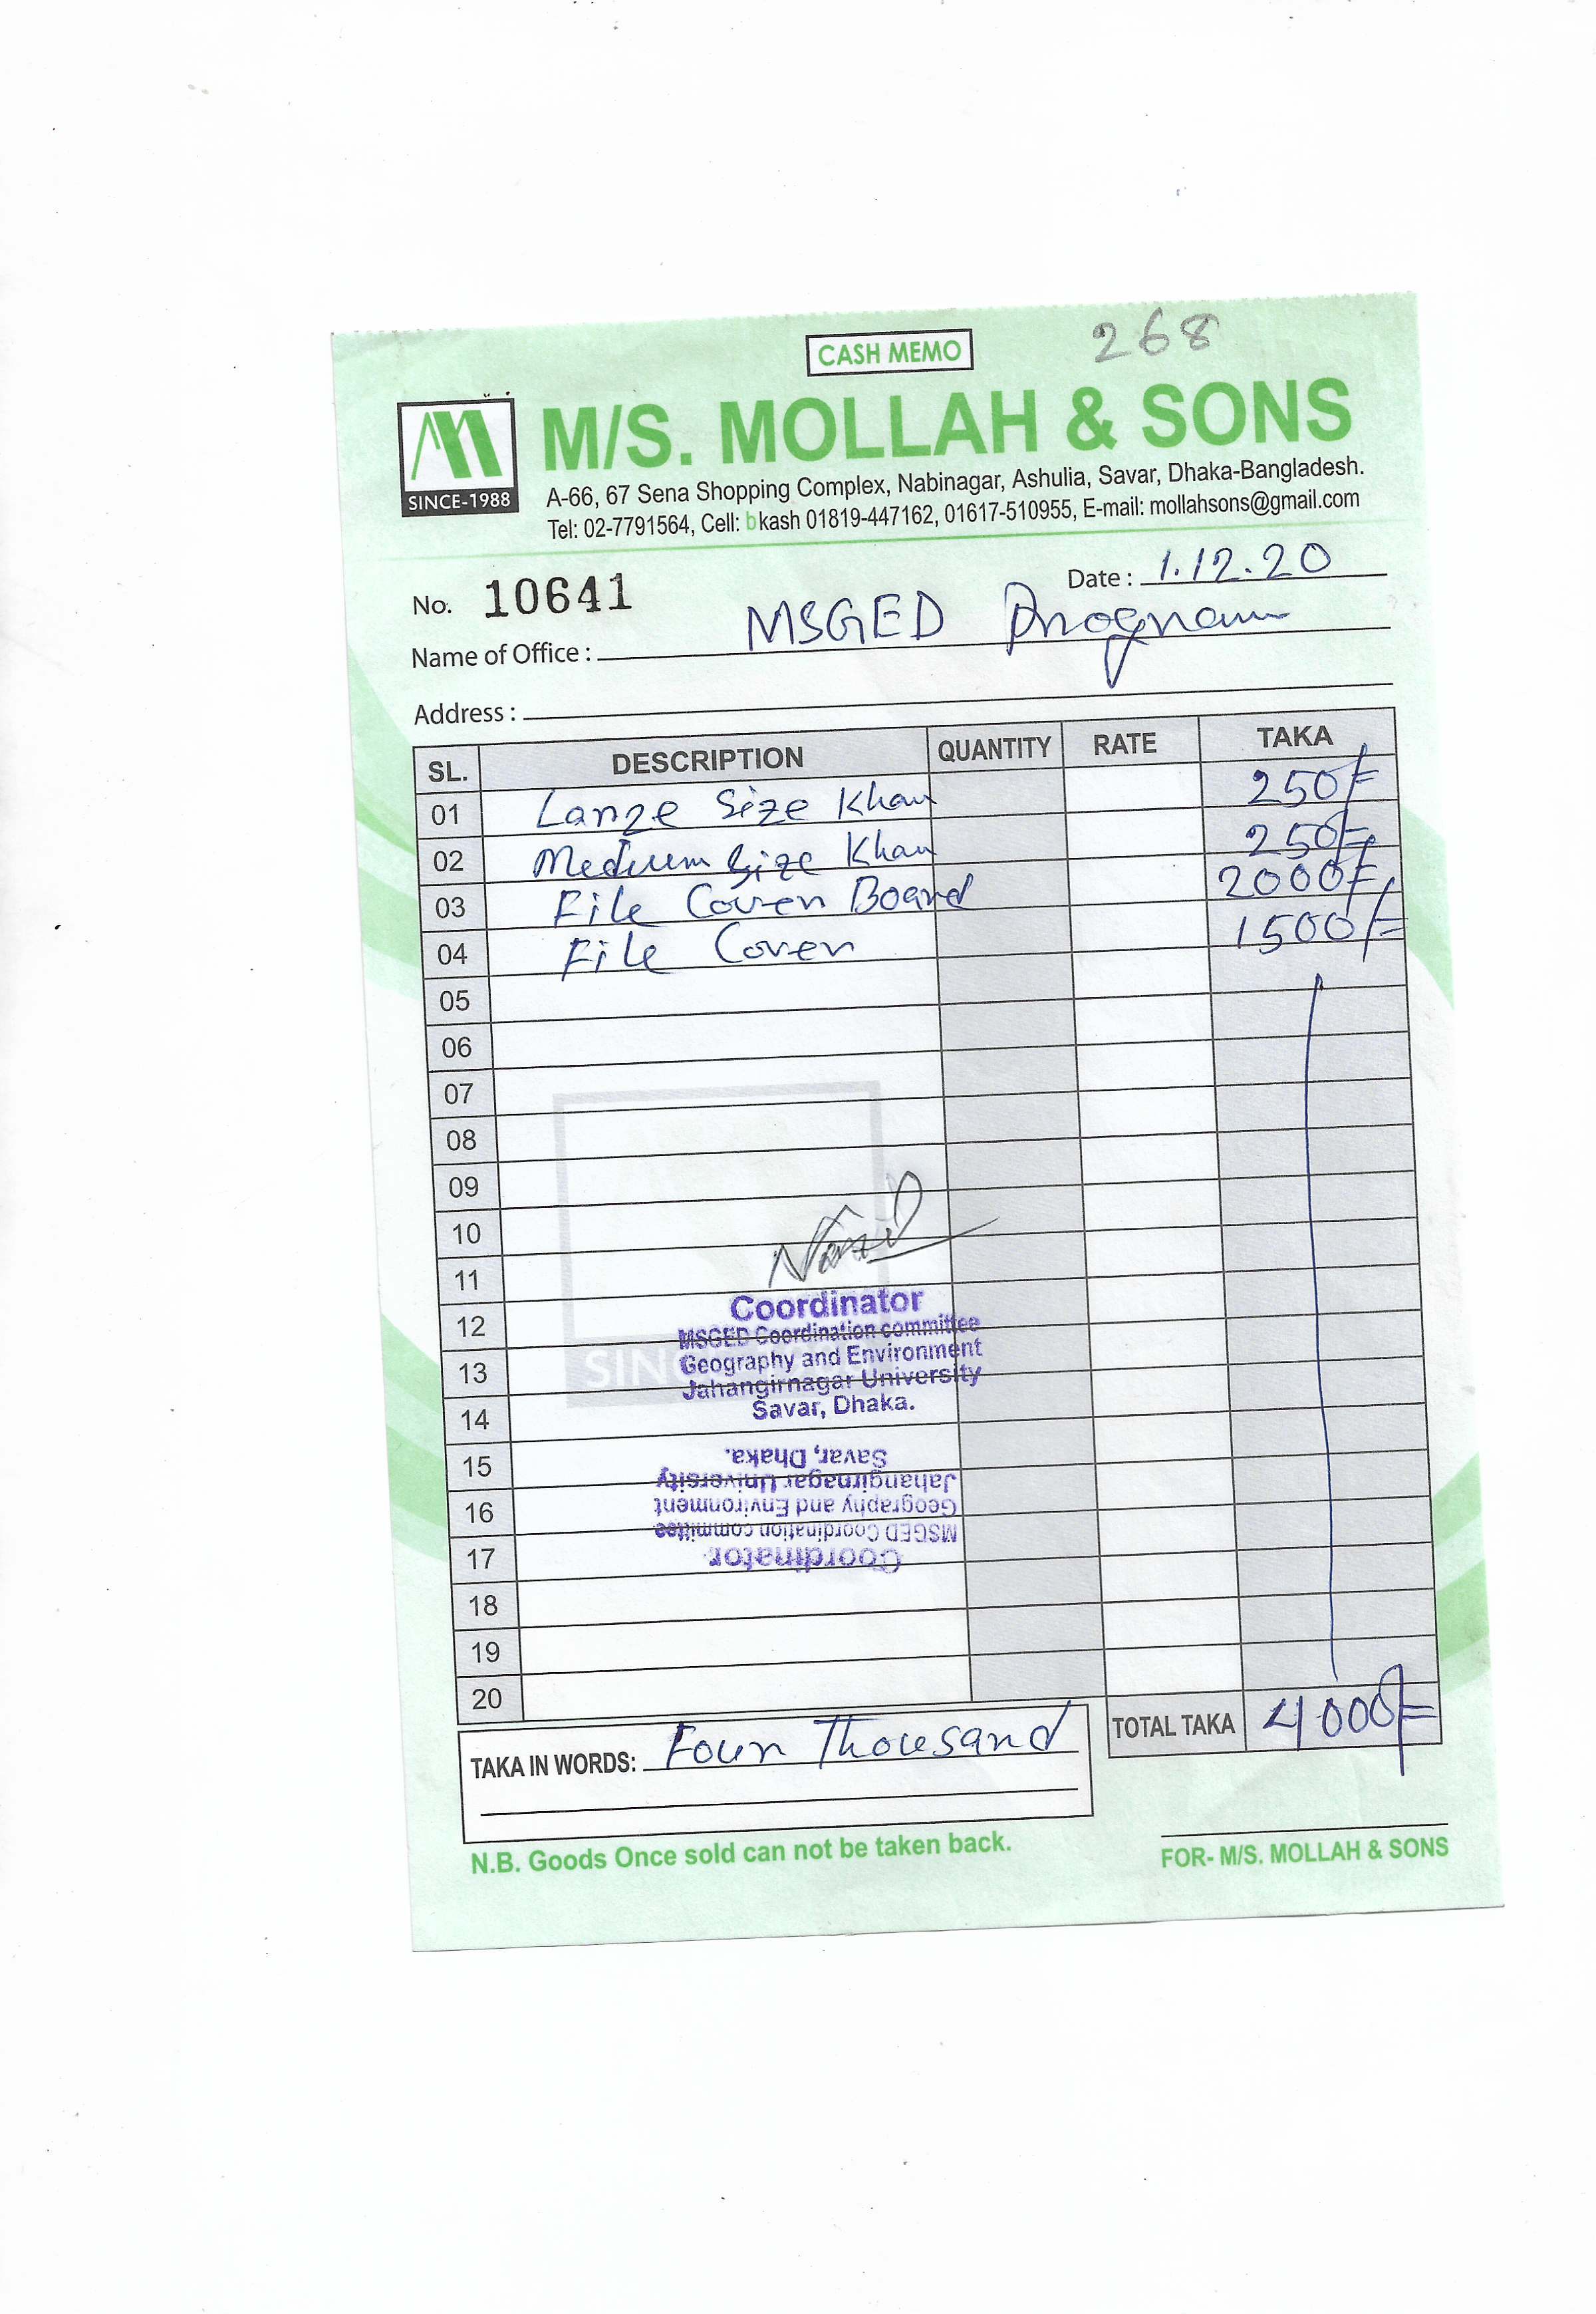 CASH MEMO
268
M/S. MOLLAH & SONS
SINCE-1988
A-66, 67 Sena Shopping Complex, Nabinagar, Ashulia, Savar, Dhaka-Bangladesh.
Tel: 02-7791564, Cell: bkash 01819-447162, 01617-510955, E-mail: mollahsons@gmail.com
No. 10641 Date : 1.12.20
Name of Office : MSGED Program
Address :
SL. DESCRIPTION QUANTITY RATE TAKA
01 Large Size Kham 250/=
02 Medium Size Kham 250/=
03 File Cover Board 2000/=
04 File Cover 1500/=
05
06
07
08
09
10
11
12
13
14
15
16
17
18
19
20
Coordinator
MSGED Coordination committee
Geography and Environment
Jahangirnagar University
Savar, Dhaka.
Coordinator
MSGED Coordination committee
Geography and Environment
Jahangirnagar University
Savar, Dhaka.
TOTAL TAKA 4000/=
TAKA IN WORDS: Four Thousand
N.B. Goods Once sold can not be taken back.
FOR- M/S. MOLLAH & SONS